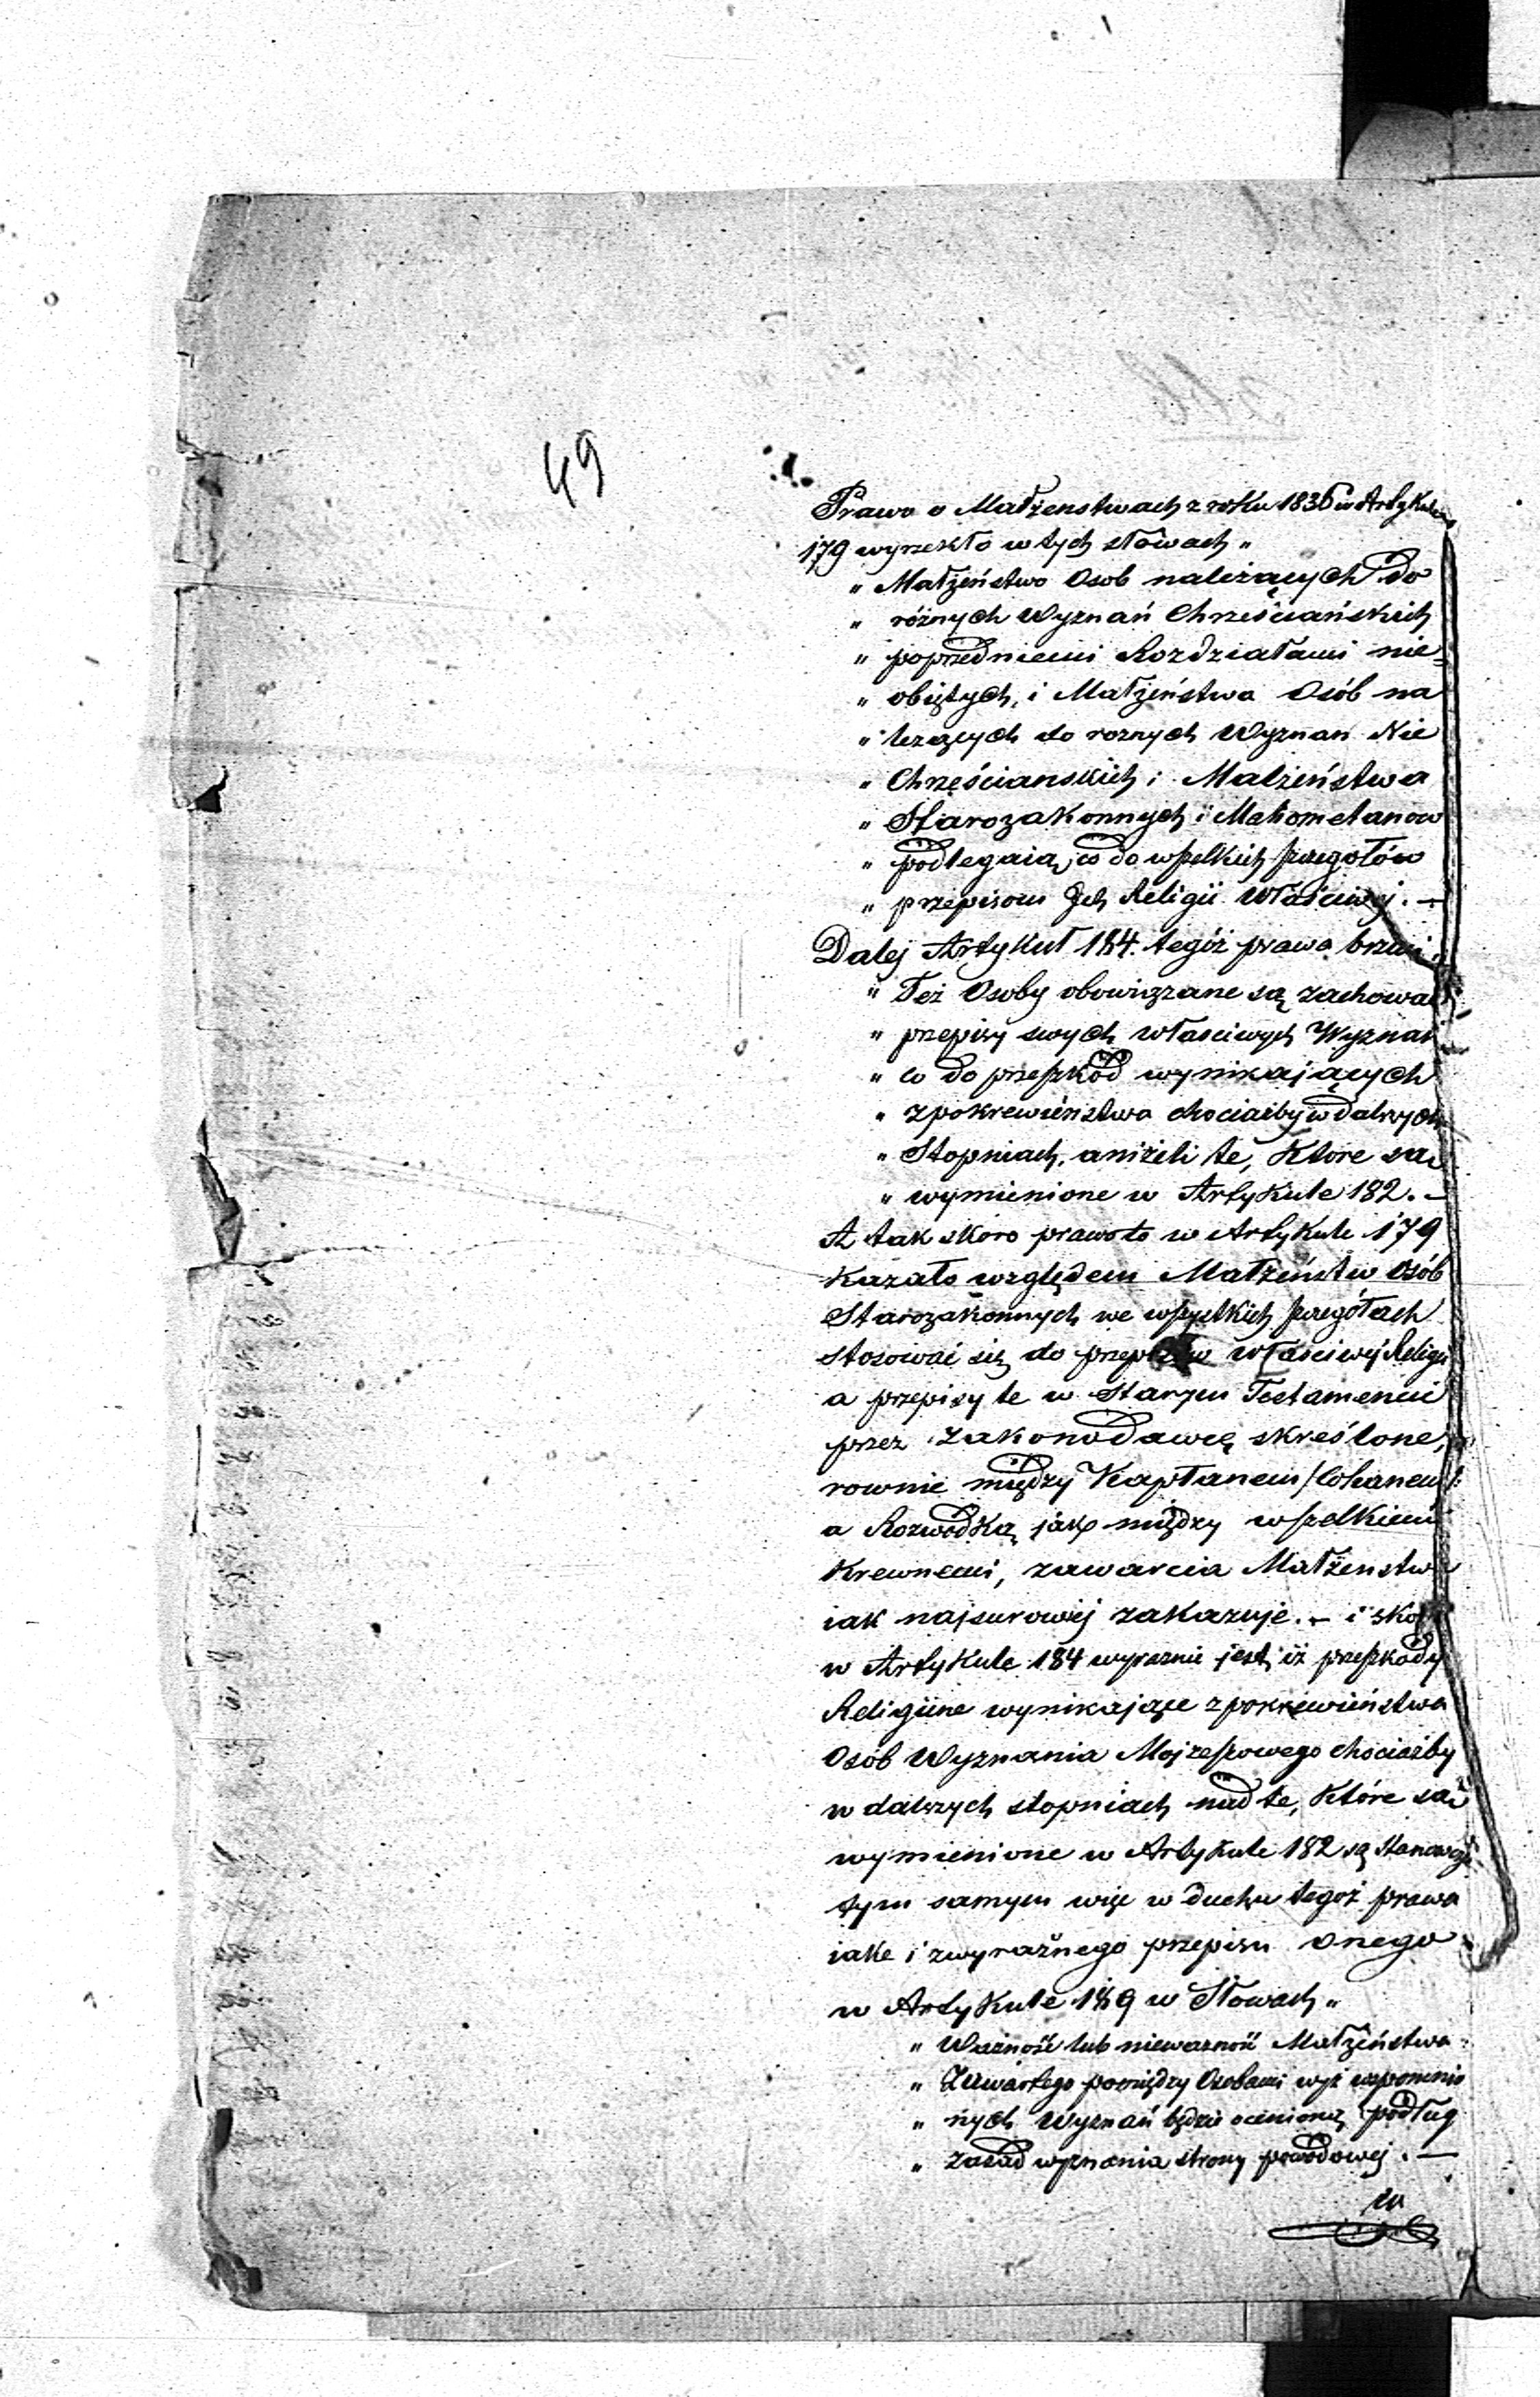 49
Prawo o Małżenstwach z roku 1836 w Artykule
179 wyrzekło w tych słowach „
„ Małżeństwo Osob należących do
„ różnych Wyznań Chrześciańskich
„ poprzedniemi Rozdziałami nie=
„ obiętych, i Małżeństwa Osób na
„ leżących do roznych Wyznan Nie
„ Chrześcianskich i Malżeństwa
„ Starozakonnych i Mahometanow
„ podlegaią co do wszelkich szczegołów
„ przepisom Jch Religii Właściwej. —
Dalej Artykuł 184. tegóż prawa brzmi:
„ Też Osoby obowiązane są zachować
„ przepisy swych właściwych Wyznań
„ co do przeszkód wynikających
„ z pokrewieństwa chociażby w dalszych
„ Stopniach, aniżeli te, Ktore są
„ wymienione w Artykule 182. —
A tak skoro prawo to w Artykule 179
Kazało względem Małżeństw Osób
Starozakonnych we wszystkich szczegółach
Stosować się do przepisów właściwej Religii
a przepisy te w Starym Testamencie
przez zakonodawcę skreślone,
rownie między Kapłanem /Cohanem/:
a Rozwodką jak między wszelkiemi
Krewnemi, zawarcia Małżenstwa
iak najsurowiej zakazuje. — i skoro
w Artykule 184 wyraznie jest, iż przeszkody
Religiine wynikające z pokrewieństwa
Osób Wyznania Mojzeszowego chociażby
w dalszych stopniach nad te, Które są
wymienione w Artykule 182 są Stanowcze
tym samym więc w duchu tegoż prawa
iako i z wyraźnego przepisu onego
w Artykule 189 w Słowach „
„ Ważność lub nieważność Małżeństwa
„ Zawartego pomiędzy Osobami wyż wspomnio
„ nych Wyznań będzie ocenioną podług
„ zasad wyznania strony powodowej. —
w